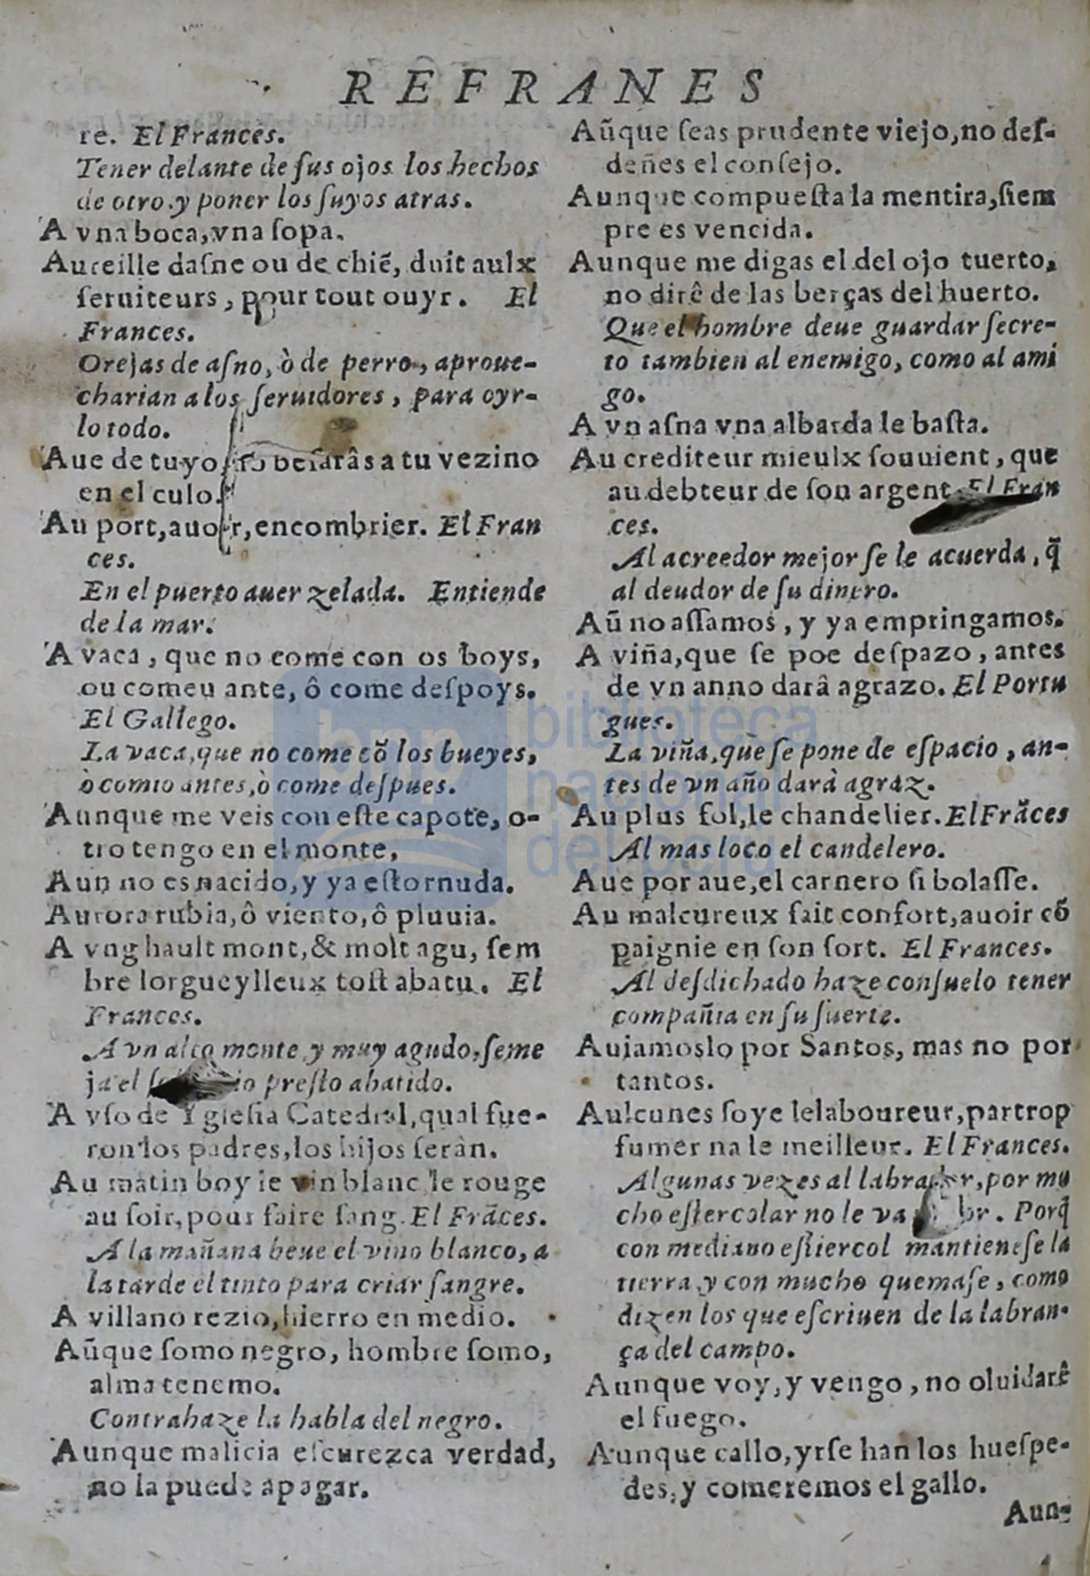 REFRANES
re. El Frances.
Tener delante de ſus ojos los hechos
de otro y poner los ſuyos atras.
A vna boca, vna ſopa.
Aureille daſne ou de chiẽ, duit aulx
ſeruiteurs, pour tout ouyr. El
Frances.
Orejas de aſno, ò de perro, aproue-
charian a los ſeruidores, para oyr-
lo todo.
Aue de tuyo, beſarâs a tu vezino
en el culo.
Au port, auoir, encombrier. El Fran
ces.
En el puerto auer zelada. Entiende
de la mar.
A vaca, que no come con os boys,
ou comeu ante, ô come deſpoys.
El Gallego.
La vaca, que no come cõ los bueyes,
ò comio antes, ò come deſpues.
Aunque me veis con eſte capote, o-
tro tengo en el monte,
Aun no es nacido, y ya eſtornuda.
Aurora rubia, ô viento, ô pluuia.
A vng hault mont, & molt agu, ſem
bre lorgueylleux toſt abatu. El
Frances.
A vn alto monte y muy agudo, ſeme
ja el preſto abatido.
A vſo de Ygleſia Catedral, qual fue-
ron los padres, los hijos ſerân.
Au matin boy ie vin blanc le rouge
au ſoir, pour faire ſang. El Frãces.
A la mañana beue el vino blanco, a
la tarde el tinto para criar ſangre.
A villano rezio, hierro en medio.
Aũque ſomo negro, hombre ſomo,
alma tenemo.
Contrahaze la habla del negro.
Aunque malicia eſcurezca verdad,
no la puede apagar.
Aũque ſeas prudente viejo, no deſ-
deñes el conſejo.
Aunque compueſta la mentira, ſiem
pre es vencida.
Aunque me digas el del ojo tuerto,
no dirê de las berças del huerto.
Que el hombre deue guardar ſecre-
to tambien al enemigo, como al ami
go.
A vn aſna vna albarda le baſta.
Au crediteur mieulx ſouuient, que
au debteur de ſon argent. El Fran
ces.
Al acreedor mejor ſe le acuerda, q̃
al deudor de ſu dinero.
Aũ no aſſamos, y ya empringamos.
A viña, que ſe poe deſpazo, antes
de vn anno darâ agrazo. El Portu
gues.
La viña, que ſe pone de eſpacio, an-
tes de vn año darà agraz.
Au plus fol, le chandelier. El Frãces
Al mas loco el candelero.
Aue por aue, el carnero ſi bolaſſe.
Au malcureux fait confort, auoir cõ
paignie en ſon ſort. El Frances.
Al deſdichado haze conſuelo tener
compañia en ſu ſuerte.
Auiamoslo por Santos, mas no por
tantos.
Aulcunes foye le laboureur, par trop
fumer na le meilleur. El Frances.
Algunas vezes al labrador, por mu
cho eſtercolar no le va. Porq̃
con mediano eſtiercol mantieneſe la
tierra y con mucho quemaſe, como
dizen los que eſcriuen de la labran-
ça del campo.
Aunque voy, y vengo, no oluidarê
el fuego.
Aunque callo, yrſe han los hueſpe-
des, y comeremos el gallo.
Aun-
biblioteca
nacional
del perú
bnp